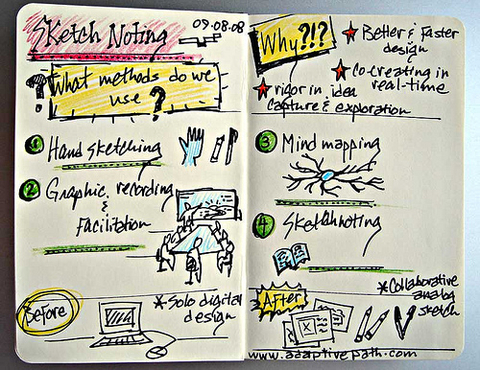 Sketch Noting
09.08.08
? What methods do we
use ?
1 Hand sketching
2 Graphic, recording
&
Facilitation
Before
* Solo digital
design
Why?!?
★ Better & Faster
design
★ Co-creating in
real-time
★ rigor in idea
capture & exploration
3 Mind mapping
4 Sketchnoting
After
* Collaborative
analog
sketch
www.adaptivepath.com